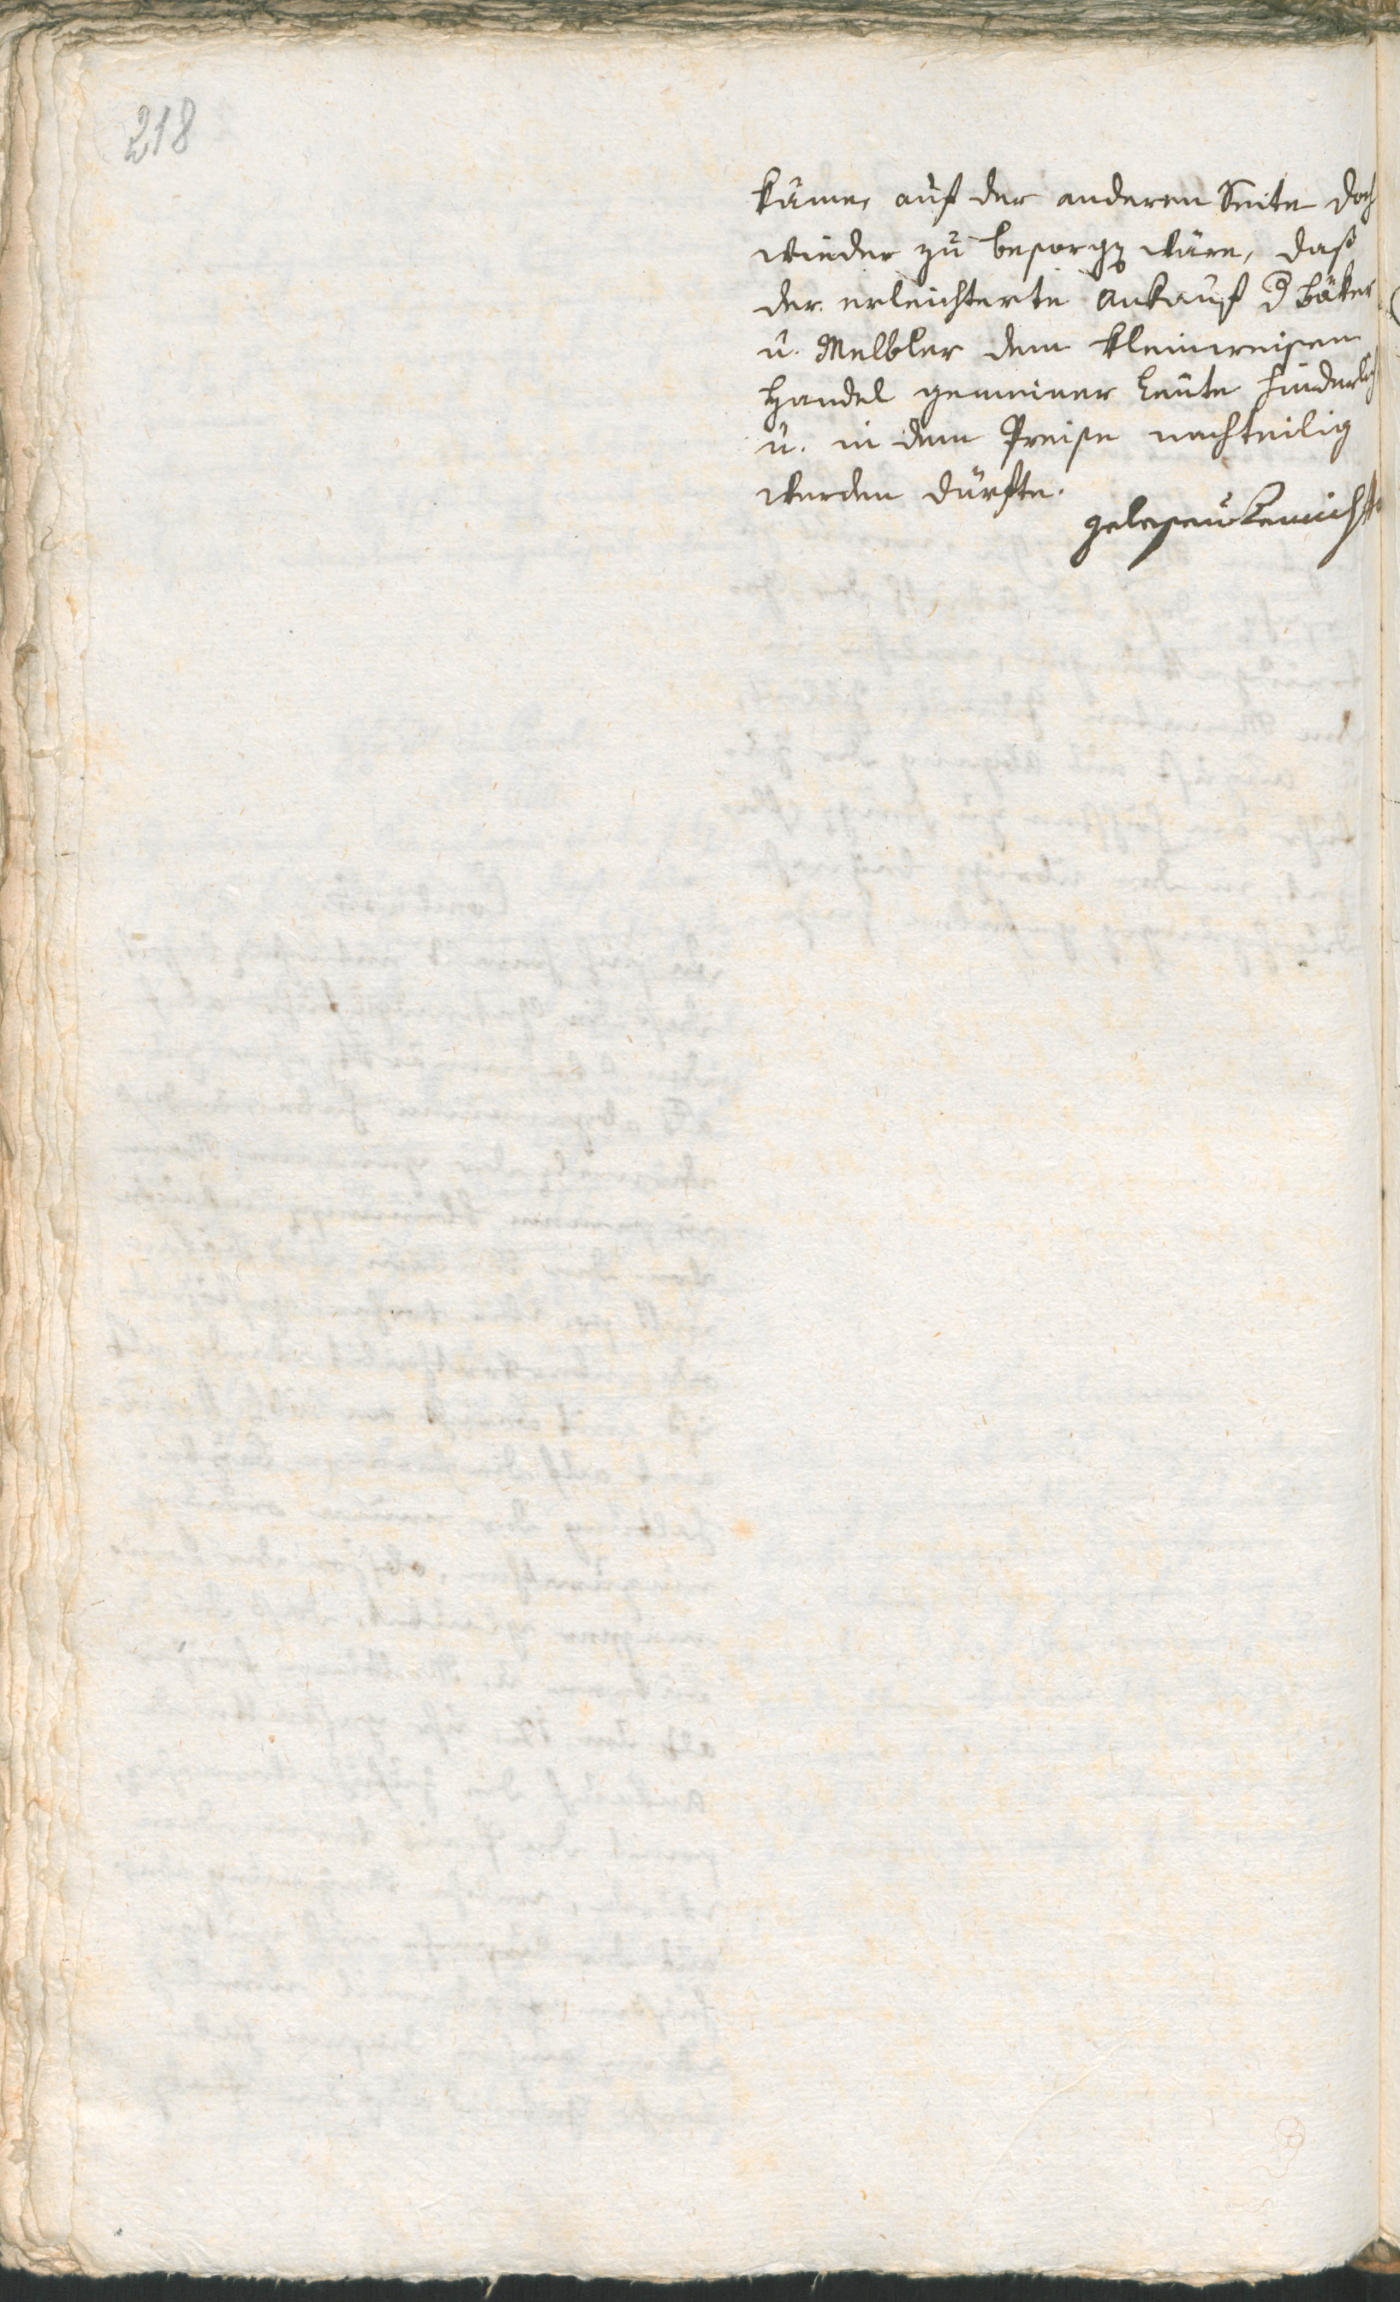 218
käme, auf der anderen Seite doch
wieder zu besorgen wäre, daß
der erleichterte Ankauf d Bäker
u. Melbler dem kleinweisen
Handel gemeiner Leute hinderlich
u. in dem Preise nachteilig
werden dürfte.
gelesen